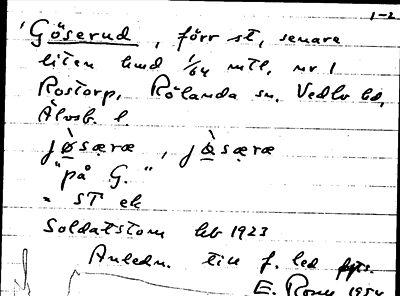 1-2
Göserud, förr st, senare
liten hmd 1/64 mtl, nr 1
Rostorp, Rölanda sn, Vedbo hd,
Älvsb. l.
jøsæræ, jøsæræ
"på G."
= ST ek
Soldattorp kb 1923
Anledn. till f. led
E. Rosu 1954